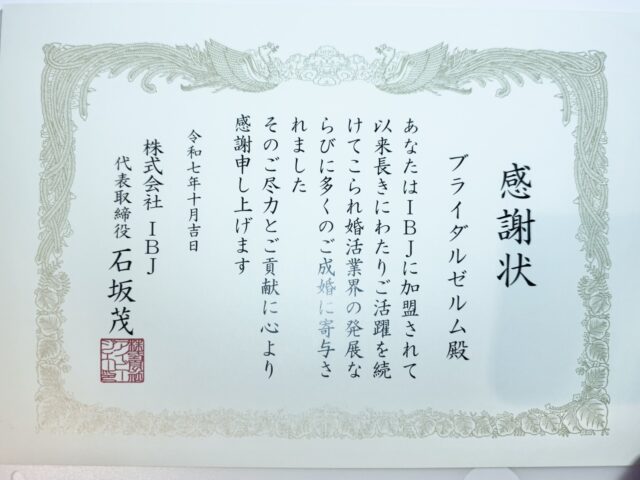 感謝状
ブライダルゼルム殿
あなたはIBJに加盟されて
以来長きにわたりご活躍を続
けてこられ婚活業界の発展な
らびに多くのご成婚に寄与さ
れました
そのご尽力とご貢献に心より
感謝申し上げます
令和七年十月吉日
株式会社 IBJ
代表取締役 石坂茂